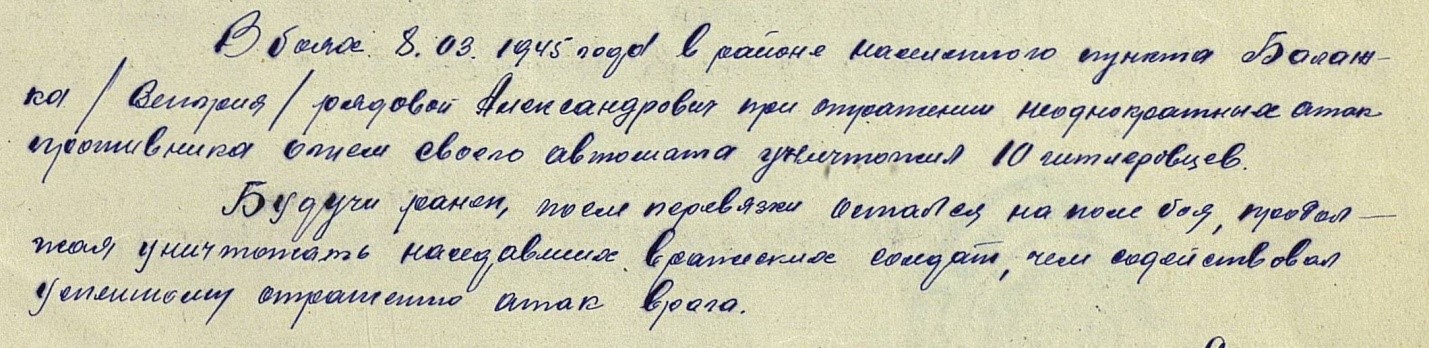 В боях 8.03.1945 года в районе населенного пункта Балаж-
ка /Венгрия/ рядовой Александрович при отражении неоднократных атак
противника огнем своего автомата уничтожил 10 гитлеровцев.
Будучи ранен, после перевязки остался на поле боя, продол-
жая уничтожать наседавших вражеских солдат, чем содействовал
успешному отражению атак врага.